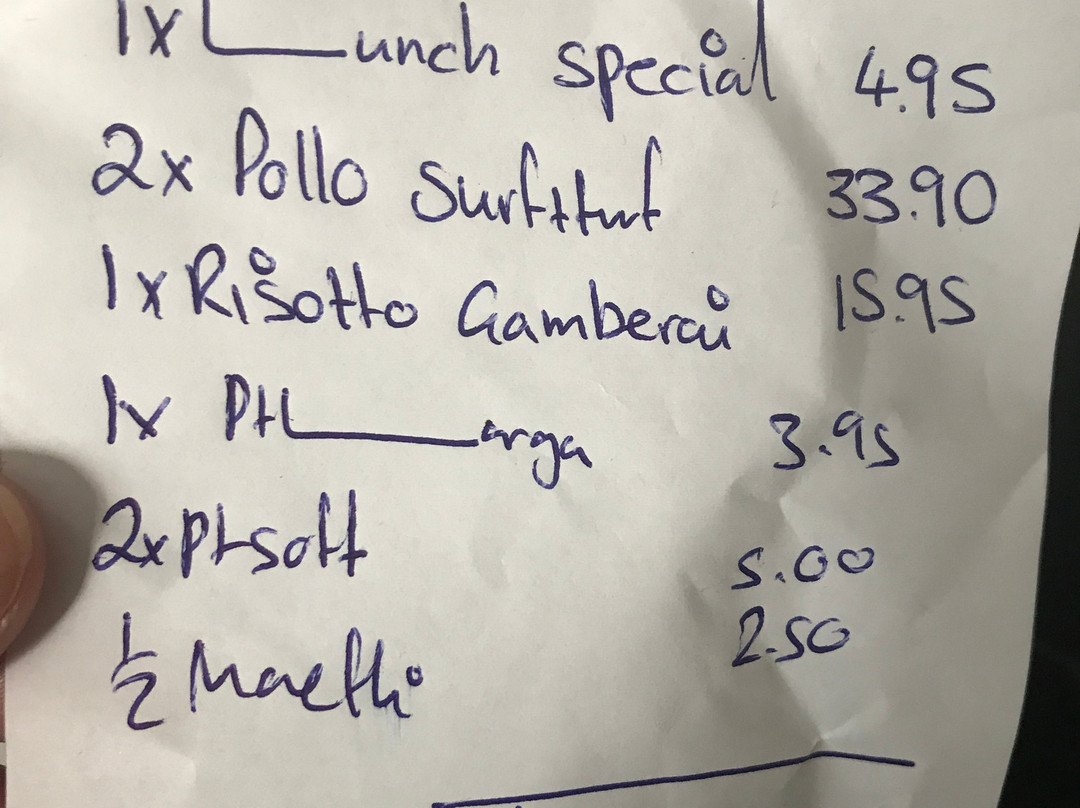 1x Lunch special 4.95
2x Pollo surf+turf 33.90
1x Risotto Gamberai 15.95
1x Pt Larga 3.95
2x Pt soft 5.00
1/2 2.50